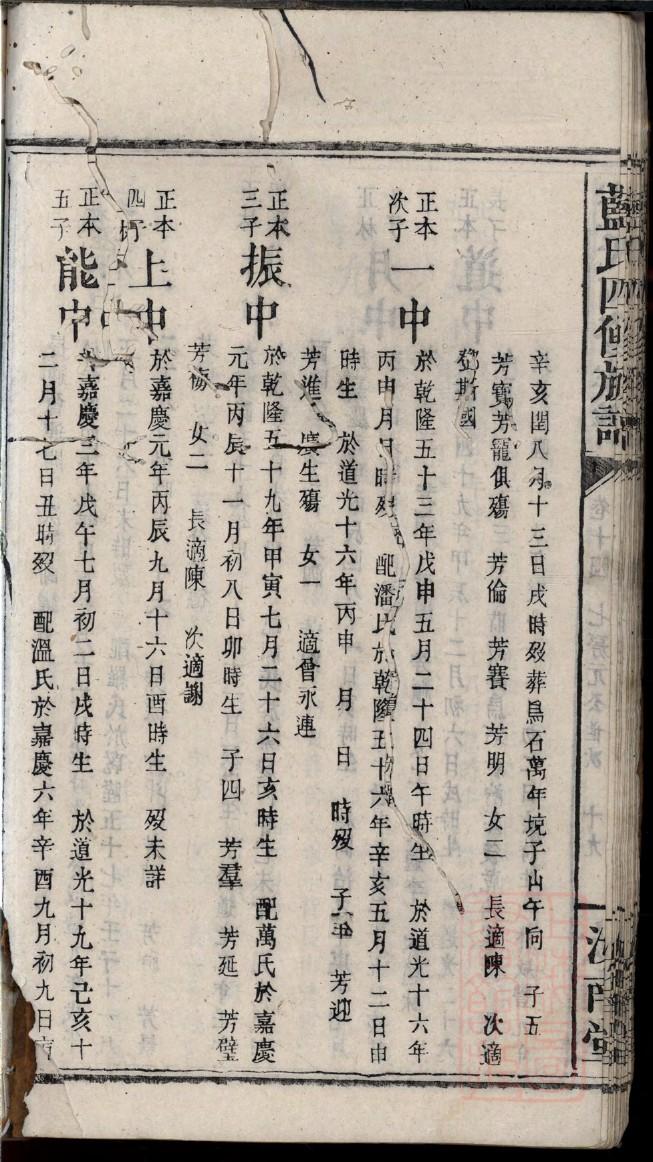 藍氏四修族譜
汝南堂
辛亥閏八月十三日戌時歿葬烏石萬年境子山午向 子五
芳寶芳寵俱殤 芳倫 芳賽 芳明 女二 長適陳 次適
鄧斯國
正本次子 一中 於乾隆五十三年戊申五月二十四日午時生 於道光十六年
丙申 月 日 時歿 配潘氏於乾隆五十六年辛亥五月十二日申
時生 於道光十六年丙申 月 日 時歿 子 芳迎
芳進 慶生殤 女一 適曾永連
正本三子 振中 於乾隆五十九年甲寅七月二十六日亥時生 配萬氏於嘉慶
元年丙辰十一月初八日卯時生 子四 芳羣 芳延 芳璧
芳 女二 長適陳 次適謝
正本四子 上中 於嘉慶元年丙辰九月十六日酉時生 歿未詳
正本五子 能中 嘉慶三年戊午七月初二日戌時生 於道光十九年己亥十
二月十七日丑時歿 配溫氏於嘉慶六年辛酉九月初九日